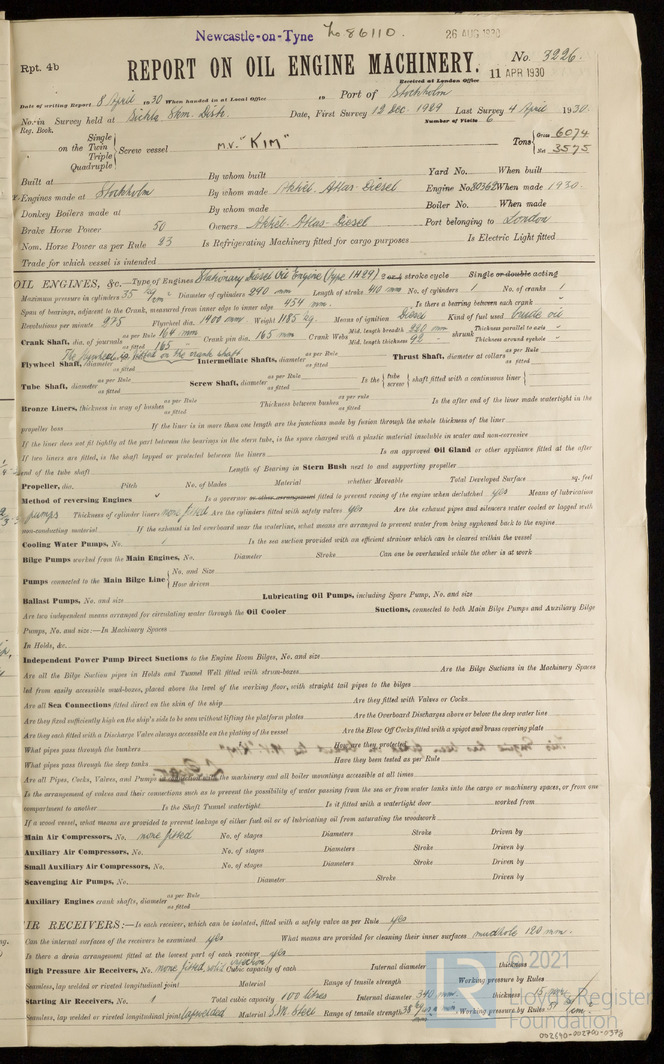 Newcastle-on-Tyne No 86110. 26 AUG 1930
Rpt. 4b
No. 3226.
REPORT ON OIL ENGINE MACHINERY.
Received at London Office 11 APR 1930
Date of writing Report 8 April 1930 When handed in at Local Office 19 Port of Stockholm
No. in Survey held at Sickla Sthm. Distr. Date, First Survey 12 Dec. 1929 Last Survey 4 April 1930
Reg. Book. Number of Visits 6
Single
on the Twin
Triple
Quadruple
Screw vessel M.V. "KIM" Tons Gross 6074
Net 3575
Built at By whom built Yard No. When built
Engines made at Stockholm By whom made Aktieb. Atlas-Diesel Engine No. 80362 When made 1930.
Donkey Boilers made at By whom made Boiler No. When made
Brake Horse Power 50 Owners Aktieb. Atlas-Diesel Port belonging to London
Nom. Horse Power as per Rule 23 Is Refrigerating Machinery fitted for cargo purposes Is Electric Light fitted
Trade for which vessel is intended
OIL ENGINES, &c.—Type of Engines Stationary Diesel Oil Engine (type 1H29) 2 or 4 stroke cycle Single or double acting
Maximum pressure in cylinders 35 kg/cm² Diameter of cylinders 290 mm Length of stroke 410 mm No. of cylinders 1 No. of cranks 1
Span of bearings, adjacent to the Crank, measured from inner edge to inner edge 454 mm. Is there a bearing between each crank
Revolutions per minute 275 Flywheel dia. 1400 mm Weight 1185 kg. Means of ignition Diesel Kind of fuel used Crude oil
Crank Shaft, dia. of journals as per Rule 164 mm as fitted 165 Crank pin dia. 165 mm Crank Webs Mid. length breadth 220 mm Mid. length thickness 92 shrunk Thickness parallel to axis Thickness around eyehole
The flywheel is fitted on the crank shaft
Flywheel Shaft, diameter as per Rule as fitted Intermediate Shafts, diameter as per Rule as fitted Thrust Shaft, diameter at collars as per Rule as fitted
Tube Shaft, diameter as per Rule as fitted Screw Shaft, diameter as per Rule as fitted Is the tube screw shaft fitted with a continuous liner
Bronze Liners, thickness in way of bushes as per Rule as fitted Thickness between bushes as per rule as fitted Is the after end of the liner made watertight in the
propeller boss If the liner is in more than one length are the junctions made by fusion through the whole thickness of the liner
If the liner does not fit tightly at the part between the bearings in the stern tube, is the space charged with a plastic material insoluble in water and non-corrosive
If two liners are fitted, is the shaft lapped or protected between the liners Is an approved Oil Gland or other appliance fitted at the after
end of the tube shaft Length of Bearing in Stern Bush next to and supporting propeller
Propeller, dia. Pitch No. of blades Material whether Moveable Total Developed Surface sq. feet
Method of reversing Engines Is a governor or other arrangement fitted to prevent racing of the engine when declutched yes Means of lubrication
pumps Thickness of cylinder liners none fitted Are the cylinders fitted with safety valves yes Are the exhaust pipes and silencers water cooled or lagged with
non-conducting material If the exhaust is led overboard near the waterline, what means are arranged to prevent water from being syphoned back to the engine
Cooling Water Pumps, No. Is the sea suction provided with an efficient strainer which can be cleared within the vessel
Bilge Pumps worked from the Main Engines, No. Diameter Stroke Can one be overhauled while the other is at work
Pumps connected to the Main Bilge Line No. and Size
How driven
Ballast Pumps, No. and size Lubricating Oil Pumps, including Spare Pump, No. and size
Are two independent means arranged for circulating water through the Oil Cooler Suctions, connected to both Main Bilge Pumps and Auxiliary Bilge
Pumps, No. and size:—In Machinery Spaces
In Holds, &c.
Independent Power Pump Direct Suctions to the Engine Room Bilges, No. and size
Are all the Bilge Suction pipes in Holds and Tunnel Well fitted with strum-boxes Are the Bilge Suctions in the Machinery Spaces
led from easily accessible mud-boxes, placed above the level of the working floor, with straight tail pipes to the bilges
Are all Sea Connections fitted direct on the skin of the ship Are they fitted with Valves or Cocks
Are they fixed sufficiently high on the ship's side to be seen without lifting the platform plates Are the Overboard Discharges above or below the deep water line
Are they each fitted with a Discharge Valve always accessible on the plating of the vessel Are the Blow Off Cocks fitted with a spigot and brass covering plate
What pipes pass through the bunkers How are they protected
What pipes pass through the deep tanks Have they been tested as per Rule
Are all Pipes, Cocks, Valves, and Pumps in connection with the machinery and all boiler mountings accessible at all times
Is the arrangement of valves and their connections such as to prevent the possibility of water passing from the sea or from water tanks into the cargo or machinery spaces, or from one
compartment to another Is the Shaft Tunnel watertight Is it fitted with a watertight door worked from
If a wood vessel, what means are provided to prevent leakage of either fuel oil or of lubricating oil from saturating the woodwork
Main Air Compressors, No. none fitted No. of stages Diameters Stroke Driven by
Auxiliary Air Compressors, No. No. of stages Diameters Stroke Driven by
Small Auxiliary Air Compressors, No. No. of stages Diameters Stroke Driven by
Scavenging Air Pumps, No. Diameter Stroke Driven by
Auxiliary Engines crank shafts, diameter as per Rule as fitted
AIR RECEIVERS:—Is each receiver, which can be isolated, fitted with a safety valve as per Rule yes
Can the internal surfaces of the receivers be examined yes What means are provided for cleaning their inner surfaces mudhole 120 mm.
Is there a drain arrangement fitted at the lowest part of each receiver yes
High Pressure Air Receivers, No. none fitted, solid injection Cubic capacity of each Internal diameter thickness
Seamless, lap welded or riveted longitudinal joint Material Range of tensile strength Working pressure by Rules
Starting Air Receivers, No. 1 Total cubic capacity 100 litres Internal diameter 340 mm. thickness 15 mm
Seamless, lap welded or riveted longitudinal joint lapwelded Material S.M. Steel Range of tensile strength Working pressure by Rules
© 2021
LR
Lloyd's Register
Foundation
002690-002700-0378